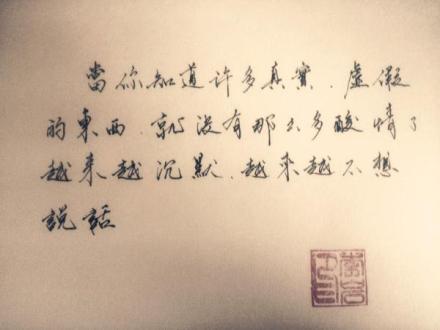 當你知道许多真實、虛假
的東西、就没有那么多酸情了
越来越沉默、越来越不想
説話